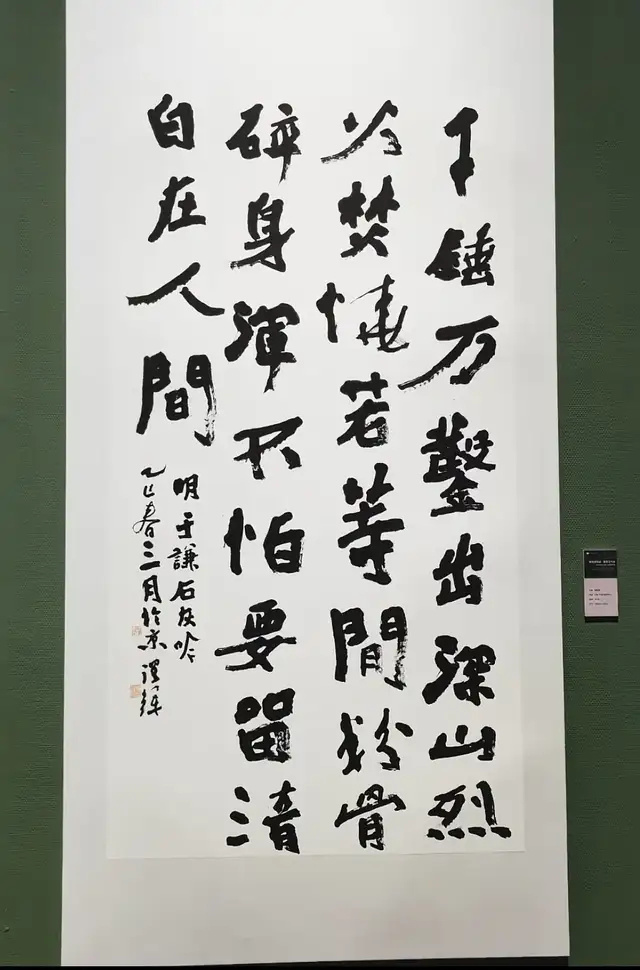 千錘万鑿出深山烈
火焚燒若等閒粉骨
碎身渾不怕要留清
白在人間
明于謙石灰吟
乙巳春三月於京